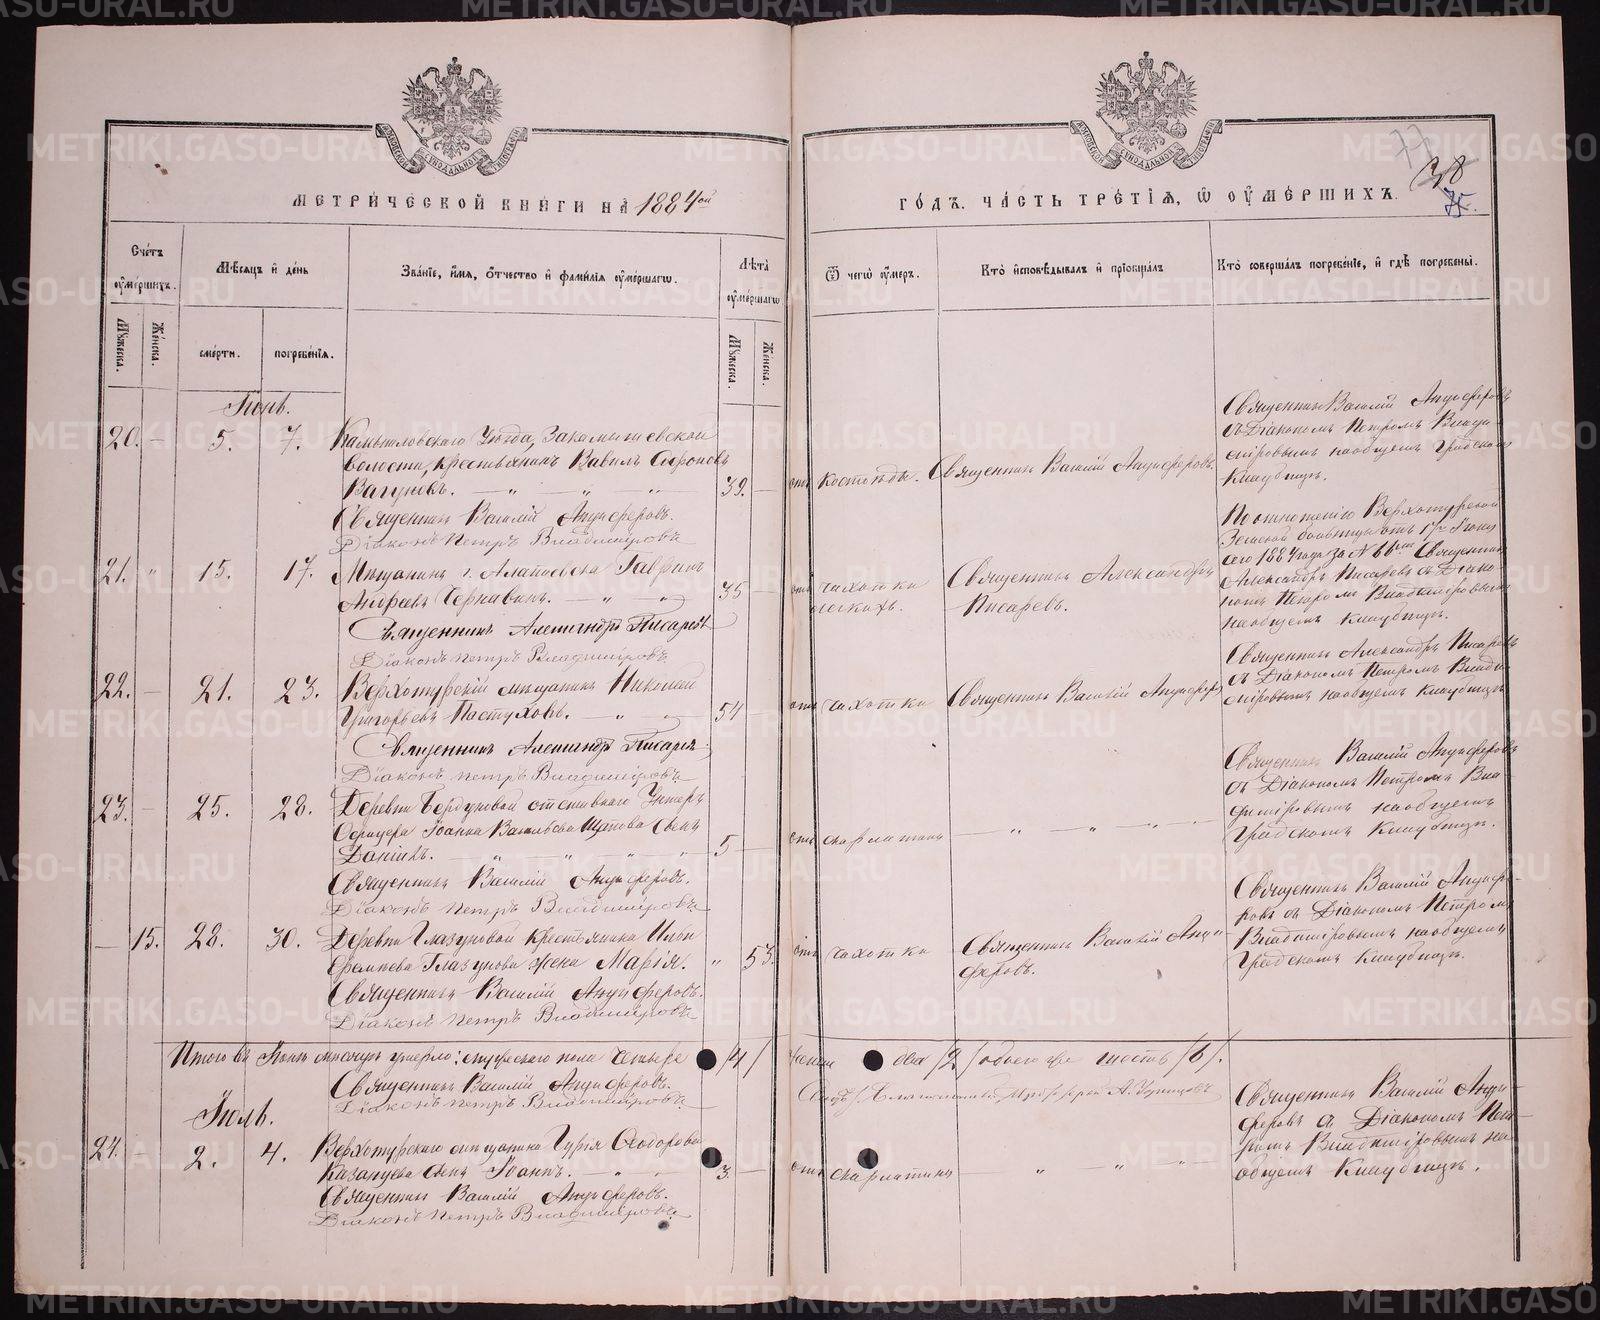 МЕТРИЧЕСКОЙ КНИГИ НА 1884ой
ГОДЪ, ЧАСТЬ ТРЕТІЯ, Ѿ ОУМЕРШИХЪ.
77
38
75.
Счетъ оумершихъ.
Мѣсяцъ и день
Званіе, имя, отчество и фамилія оумершагѡ.
Лѣта оумершагѡ
Ѿ чегѡ оумеръ.
Кто исповѣдывалъ и пріобщалъ
Кто совершалъ погребеніе, и гдѣ погребены.
Мужеска.
Женска.
смерти.
погребенія.
Мужеска.
Женска.
Іюнь.
20. — 5. 7.
Камышловскаго Уѣзда, Закамышевской
волости, крестьянинъ Вавилъ
Вагуновъ. — „ — „ — „
39. —
отъ костоѣды.
Священникъ Василій Анциферовъ.
Священникъ Василій Анциферовъ
съ Діакономъ Петромъ Влади-
міровымъ на общемъ Градскомъ
Кладбищѣ.
Священникъ Василій Анциферовъ.
Діаконъ Петръ Владиміровъ
21. „ 15. 17.
Мѣщанинъ г. Алапаевска Гавріилъ
Андреевъ Чернавинъ. — „ — „
35 —
отъ чахотки
легкихъ.
Священникъ Александръ
Писаревъ.
По отношенію Верхотурской
Земской больницы отъ 17го Іюня
сего 1884 года за № 66 Священникъ
Александръ Писаревъ съ Діако-
номъ Петромъ Владиміровымъ
на общемъ Кладбищѣ.
Священникъ Александръ Писаревъ
Діаконъ Петръ Владиміровъ
22. — 21. 23.
Верхотурскій мѣщанинъ Николай
Григорьевъ Пастуховъ. — „ — „
54 —
отъ чахотки
Священникъ Василій Анциферовъ
Священникъ Александръ Писаревъ
съ Діакономъ Петромъ Влади-
міровымъ на общемъ Кладбищѣ
Священникъ Александръ Писаревъ
Діаконъ Петръ Владиміровъ
23. — 25. 28.
Деревни отставнаго Унтеръ
Офицера Іоанна Васильева сынъ
Даніилъ. — „ — „ — „ — „
5 —
отъ скарлатины
— „ — „ — „ —
Священникъ Василій Анциферовъ
съ Діакономъ Петромъ Вла-
диміровымъ на общемъ
Градскомъ Кладбищѣ.
Священникъ Василій Анциферовъ.
Діаконъ Петръ Владиміровъ
— 15. 28. 30.
Деревни Глазуновой крестьянина
Глазунова жена Марія.
„ 53.
отъ чахотки
Священникъ Василій Анци-
феровъ.
Священникъ Василій Анцифе-
ровъ съ Діакономъ Петромъ
Владиміровымъ на общемъ
Градскомъ Кладбищѣ.
Священникъ Василій Анциферовъ.
Діаконъ Петръ Владиміровъ
Итого въ Іюнѣ мѣсяцѣ умерло: мужескаго пола четыре /4/ женска два /2/ обоего же шесть /6/.
Священникъ Василій Анциферовъ.
Діаконъ Петръ Владиміровъ
Іюль.
24. — 2. 4.
Верхотурскаго мѣщанина Гурія Ѳеодорова
сынъ Іоаннъ. — „ — „
3. —
отъ скарлатины
— „ — „ — „ —
Священникъ Василій Анци-
феровъ съ Діакономъ Пет-
ромъ Владиміровымъ на
общемъ Кладбищѣ.
Священникъ Василій Анциферовъ.
Діаконъ Петръ Владиміровъ
METRIKI.GASO-URAL.RU